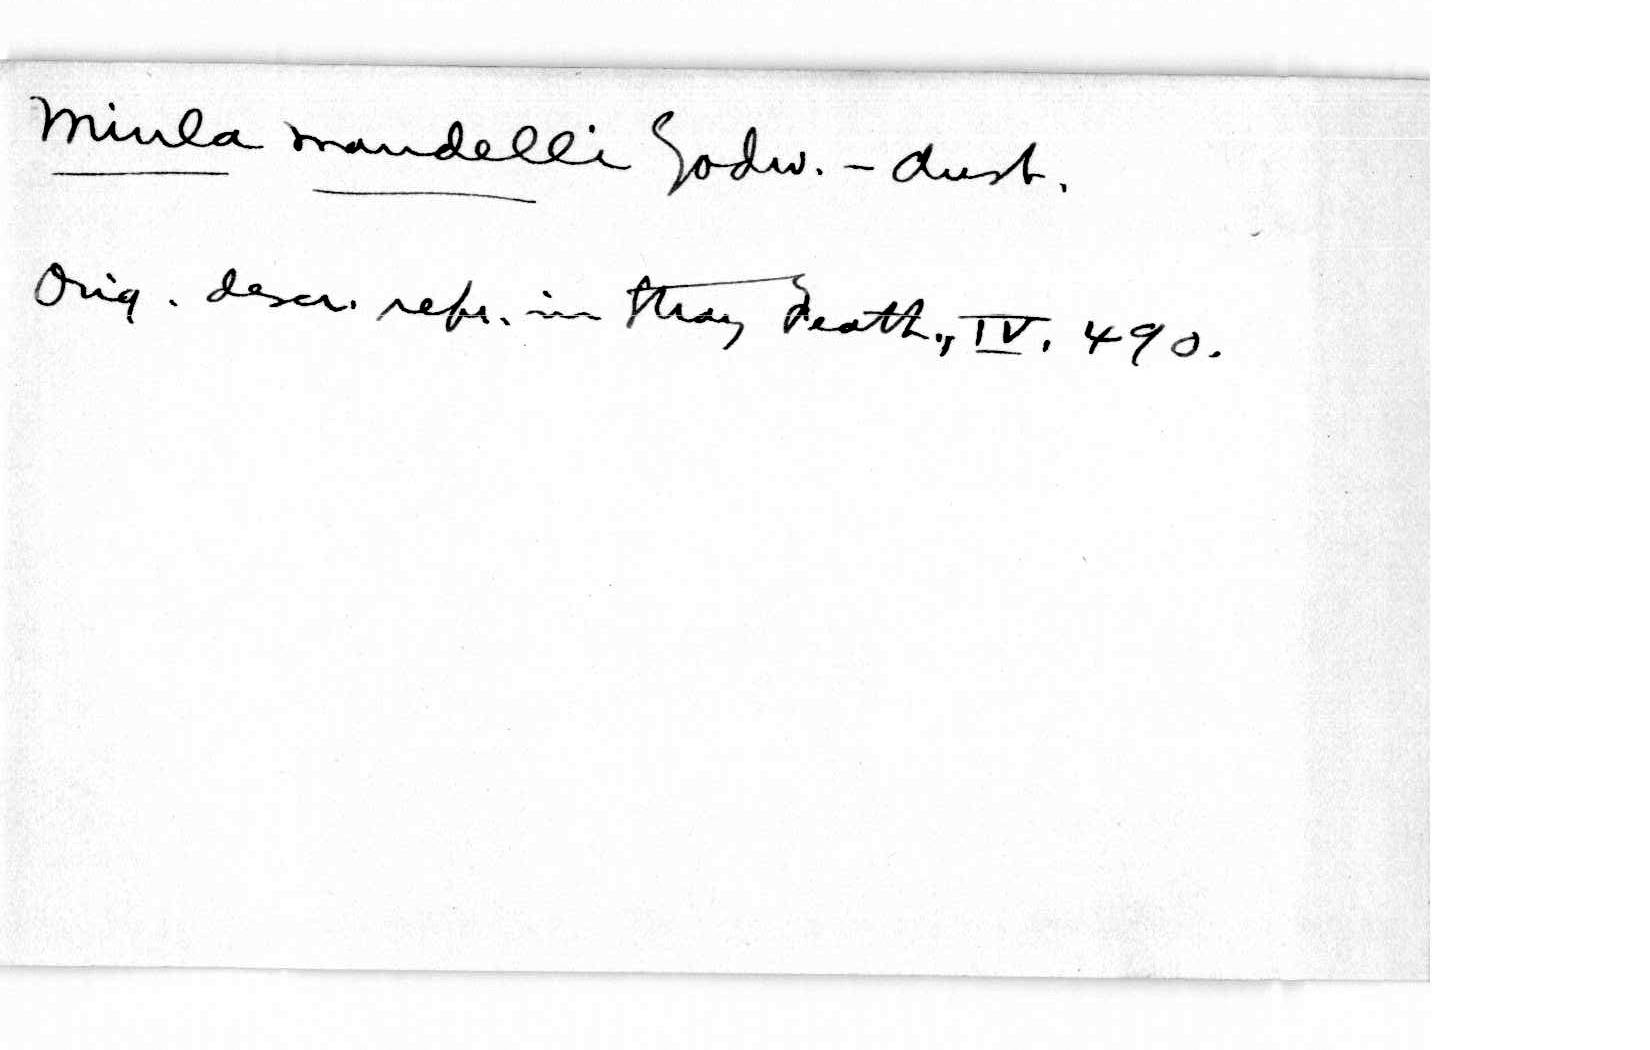 Minla mandelli Godw. - Aust.
Orig. descr. repr. in Stray Feath., IV, 490.